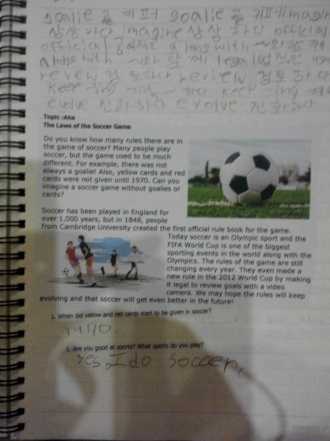 goalie 골키퍼 goalie 골키퍼 imagine
상상하다 imagine 상상하다 official
official along with ~와 함께
along with ~와 함께 legal
review 검토하다 review 검토하다
keep ~ing keep ~ing
evolve 진화하다 evolve 진화하다
Topic :Ana
The Laws of the Soccer Game
Do you know how many rules there are in
the game of soccer? Many people play
soccer, but the game used to be much
different. For example, there was not
always a goalie! Also, yellow cards and red
cards were not given until 1970. Can you
imagine a soccer game without goalies or
cards?
Soccer has been played in England for
over 1,000 years, but in 1848, people
from Cambridge University created the first official rule book for the game.
Today soccer is an Olympic sport and the
FIFA World Cup is one of the biggest
sporting events in the world along with the
Olympics. The rules of the game are still
changing every year. They even made a
new rule in the 2012 World Cup by making
it legal to review goals with a video
camera. We may hope the rules will keep
evolving and that soccer will get even better in the future!
1. When did yellow and red cards start to be given in soccer?
1970.
2. Are you good at sports? What sports do you play?
Yes, I do soccer.